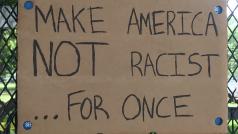 MAKE AMERICA
NOT RACIST
...FOR ONCE